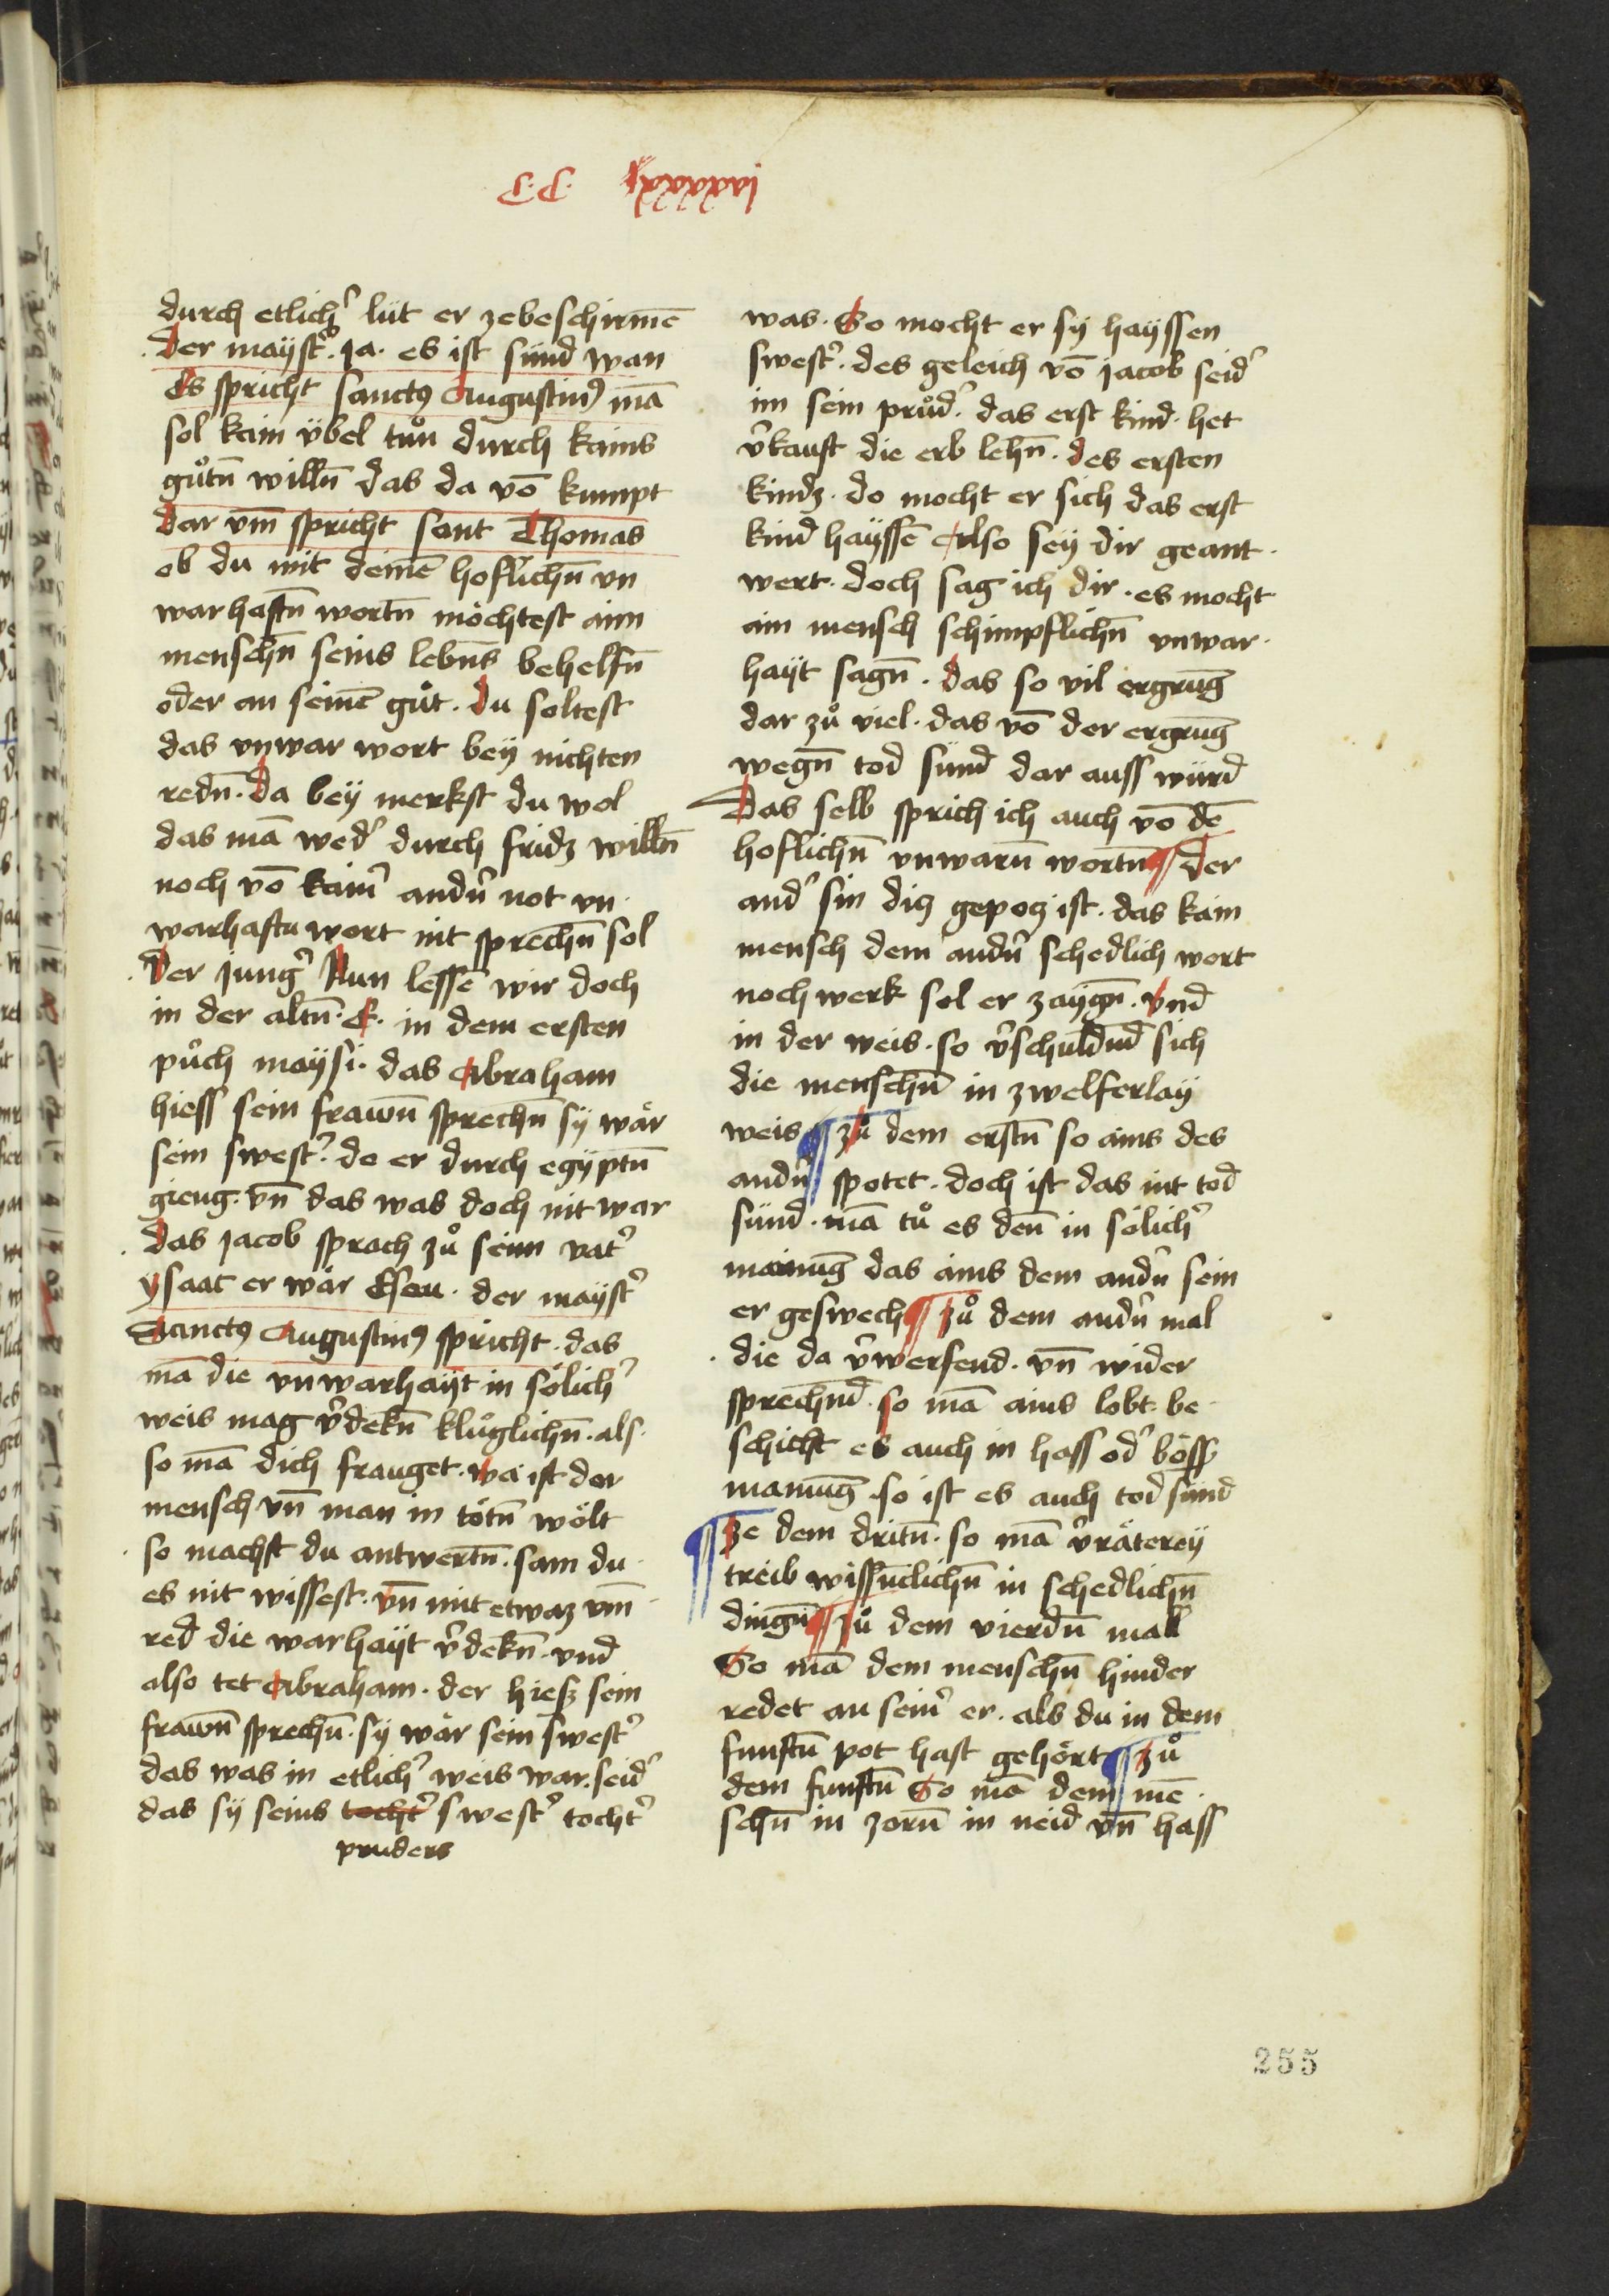 C·C·
durch etlichˀ lüt er zebeschirmē
Der maystˀ. Ja. es ist sünd wan
Es spricht sanctꝯ Augustinꝯ mā
sol kain ỽbel tuͦn durch kains
guͦtn̄ willn̄ das da võ kumpt
Dar vm̄ spricht sant Thomas
ob du mit deinē hoflichn̄ vn
warhaftn̄ wortn̄ möchtest ainn
menschn̄ seins lebn̄s behelfn̄
oder an seinē guͦt. Du soltest
das vnwar wort bey nichten
redn̄. Da bey merkst du wol
das mā wedˀ durch fridz willn̄
noch võ kainˀ andn̄ˀ not vn
warhaftu wort nit sprechn̄ sol
Der jungˀ Nun lessē wir doch
in der altn̄. E. in dem ersten
puͦch maysi. das Abraham
hiess sein frawn̄ sprechn̄ sy wär
sein swestˀ. do er durch egyptn̄
gieng. vn̄ das was doch nit war
Das jacob sprach zuͦ seim vatˀ
ysaat er wär Esau. der maystˀ
Sanctꝯ Augustinꝯ spricht. das
mā die vnwarhayt in sölichˀ
weis mag vˀdekn̄ kluͦglichn̄. als
so mā dich frauget. wa ist der
mensch vn̄ man in tötn̄ wölt
so machst du antwertn̄. sam du
es nit wissest. vn̄ mit etwaz vm̄
red die warhayt vˀdekn̄. vnd
also tet Abraham. der hiesz sein
frawn̄ sprechn̄. sy wär sein swestˀ
das was in etlichˀ weis war. seidˀ
das sy seins tochtˀ swestˀ tochtˀ
pruders
was. So mocht er sy hayssen
swestˀ. des geleich võ jacob seidˀ
im sein pruͦdˀ. das erst kind. het
vˀkauft die erb lehn̄. des ersten
kindz. do mocht er sich das erst
kind hayssē Also sey dir geant
wert. doch sag ich dir. es mocht
ain mensch schimpflichn̄ vnwar
hayt sagn̄. Das so vil ergrūg
dar zuͦ viel. das võ der ergrūg
wegn̄ tod sünd dar auss würd
Das selb sprich ich auch võ dē
hoflichn̄ vnwarn̄ wortn̄ ¶ Der
andˀ sin diz gepoz ist. das kain
mensch dem andn̄ˀ schedlich wort
noch werk sol er zaygn̄. vnd
in der weis. so vˀschuldn̄d sich
die menschn̄ in zwelferlay
weis ¶ zuͦ dem erstn̄ so ains des
andn̄ˀ spotet. doch ist das nit tod
sünd. mā tuͦ es den̄ in sölichˀ
mainūg das ains dem andn̄ˀ sein
er geswech ¶ zuͦ dem andn̄ˀ mal
die da vˀwersend. vn̄ wider
sprechn̄d. so mā ains lobt. be
schicht es auch in hass odˀ böss
manūg. so ist es auch tod sünd
¶ ze dem dritn̄. so mā vˀräterey
treib wissn̄clichn̄ in schedlichn̄
dingn̄ ¶ zuͦ dem vierdn̄ mal
So mā dem menschn̄ hinder
redet an seinˀ er. als du in dem
funftn̄ pot hast gehört ¶ zuͦ
dem funftn̄ So mā dem mē
schn̄ in zorn̄ in neid vn̄ hass
255